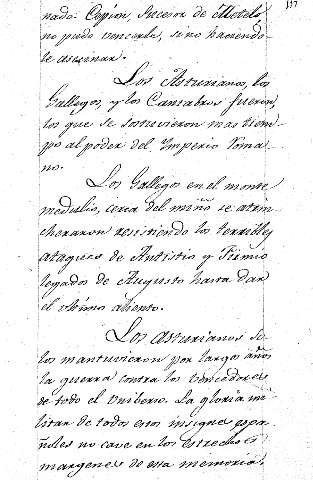 137
nado. Cepion, sucesor de Metelo
no pudo vencerle, sino haciendo-
le asesinar.
Los Asturianos, los
Gallegos, y los Cantabros fueron
los que se sostuvieron mas tiem-
po al poder del Imperio Roma-
no.
Los Gallegos en el monte
medulio, cerca del miño se atrin
cheraron resistiendo los terribles
ataques de Antistio y Firmio
legados de Augusto hasta dar
el ultimo aliento.
Los asturianos so-
los mantuvieron por largos años
la guerra contra los vencedores
de todo el Universo. La gloria mi
litar de todos estos insignes espa-
ñoles no cave en los estrechos
margenes de esta memoria.